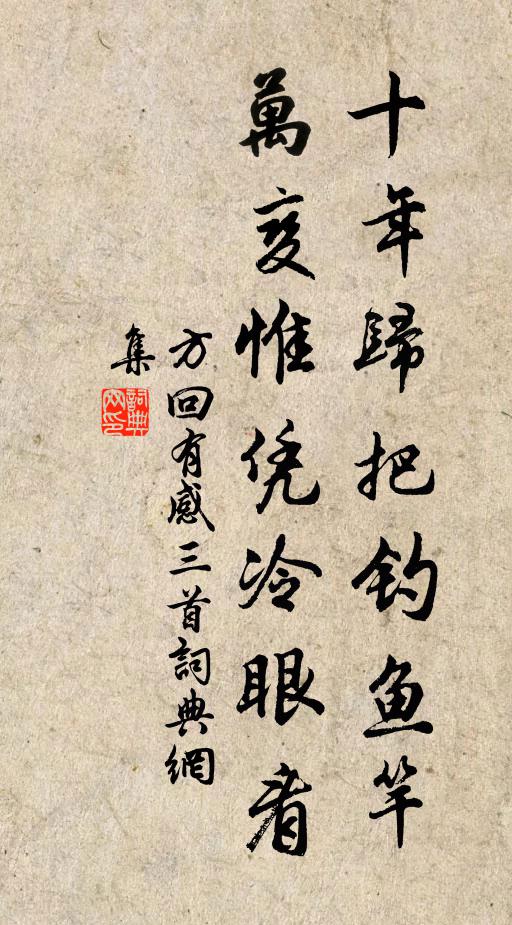 十年歸把釣鱼竿
萬变惟凭冷眼看
方回有感三首詞典網
集
詞典
网印